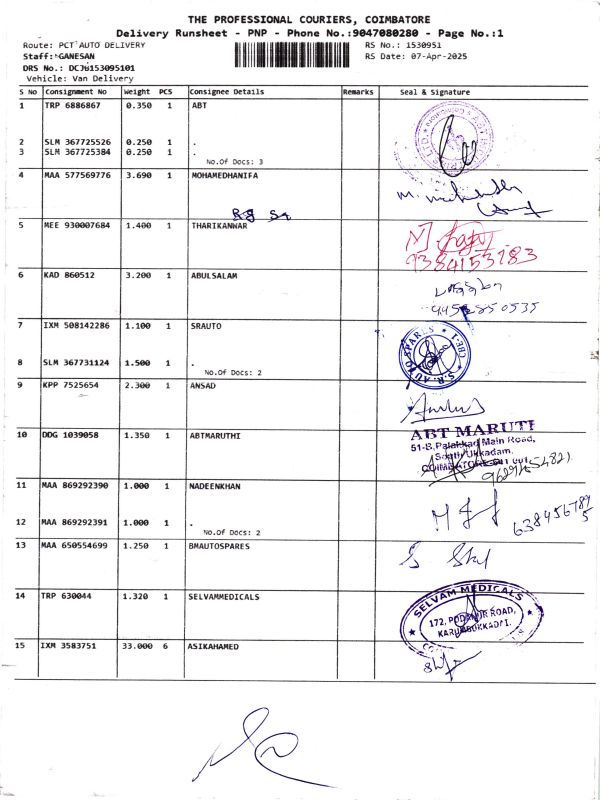 THE PROFESSIONAL COURIERS, COIMBATORE
Delivery Runsheet - PNP - Phone No.:9047080280 - Page No.:1
Route: PCT AUTO DELIVERY RS No.: 1530951
Staff: GANESAN RS Date: 07-Apr-2025
DRS No.: DCJ6153095101
Vehicle: Van Delivery
S No Consignment No Weight PCS Consignee Details Remarks Seal & Signature
1 TRP 6886867 0.350 1 ABT
2 SLM 367725526 0.250 1 .
3 SLM 367725384 0.250 1 .
No.Of Docs: 3
4 MAA 577569776 3.690 1 MOHAMEDHANIFA
5 MEE 930007684 1.400 1 THARIKANWAR
9384153783
6 KAD 860512 3.200 1 ABULSALAM
7 IXM 508142286 1.100 1 SRAUTO
S.R. AUTO SPARES ★ CBE-1 ★
8 SLM 367731124 1.500 1 .
No.Of Docs: 2
9 KPP 7525654 2.300 1 ANSAD
10 DDG 1039058 1.350 1 ABTMARUTHI
ABT MARUTI
51-B, Palakkad Main Road,
South Ukkadam,
11 MAA 869292390 1.000 1 NADEENKHAN
12 MAA 869292391 1.000 1 .
No.Of Docs: 2
13 MAA 650554699 1.250 1 BMAUTOSPARES
14 TRP 630044 1.320 1 SELVAMMEDICALS
SELVAM MEDICALS
172, PODANUR ROAD,
KARUMBUKKADAI.
15 IXM 3583751 33.000 6 ASIKAHAMED